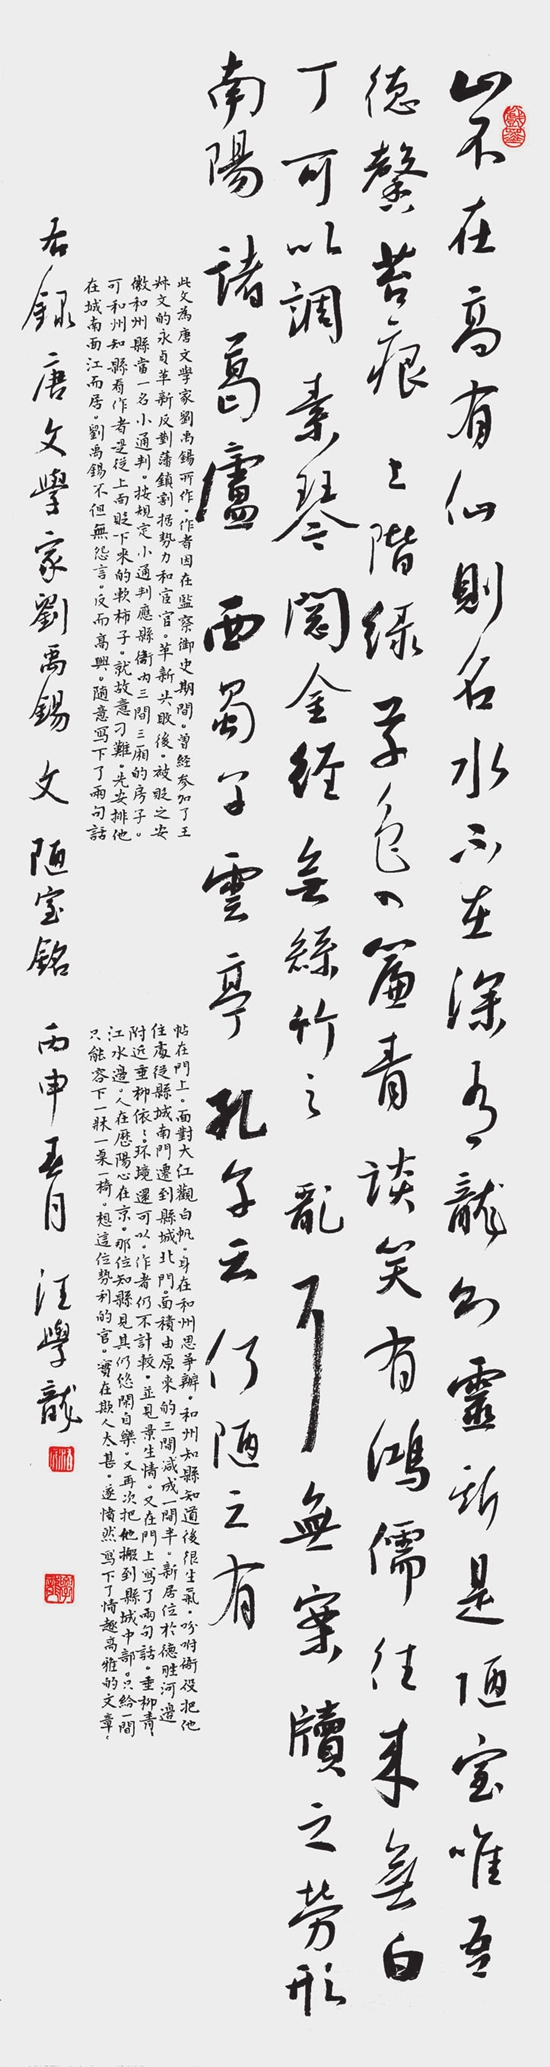 山不在高有仙則名水不在深有龍則靈斯是陋室唯吾
德馨苔痕上階綠草色入簾青談笑有鴻儒往来無白
丁可以調素琴閱金經無絲竹之亂耳無案牘之勞形
南陽諸葛廬西蜀子雲亭孔子云何陋之有
此文為唐文學家劉禹錫所作。作者因在監察御史期間。曾經參加了王
叔文的永貞革新反對藩鎮割据勢力和宦官。革新失敗後。被貶之安
徽和州縣當一名小通判。按規定小通判應縣衙内三間三廂的房子。
可和州知縣看作者是從上面貶下来的軟柿子。就故意刁難。先安排他
在城南面江而居。劉禹錫不但無怨言。反而高興。隨意寫下了兩句話
帖在門上。面對大江觀白帆。身在和州思爭辦。和州知縣知道後很生氣。吩咐衙役把他
住處從縣城南門遷到縣城北門。面積由原来的三間减成一間半。新居位於德胜河邊
附近垂柳依依。环境還可以。作者仍不計較。並見景生情。又在門上寫了兩句話。垂柳青青
江水邊。人在歷陽心在京。那位知縣見其仍悠閑自樂。又再次把他搬到縣城中部。只給一間
只能容下一牀一桌一椅。想這位勢利的官。實在欺人太甚。遂憤然寫下了情趣高雅的文章。
右録唐文學家劉禹錫文陋室銘丙申五月汪學龍